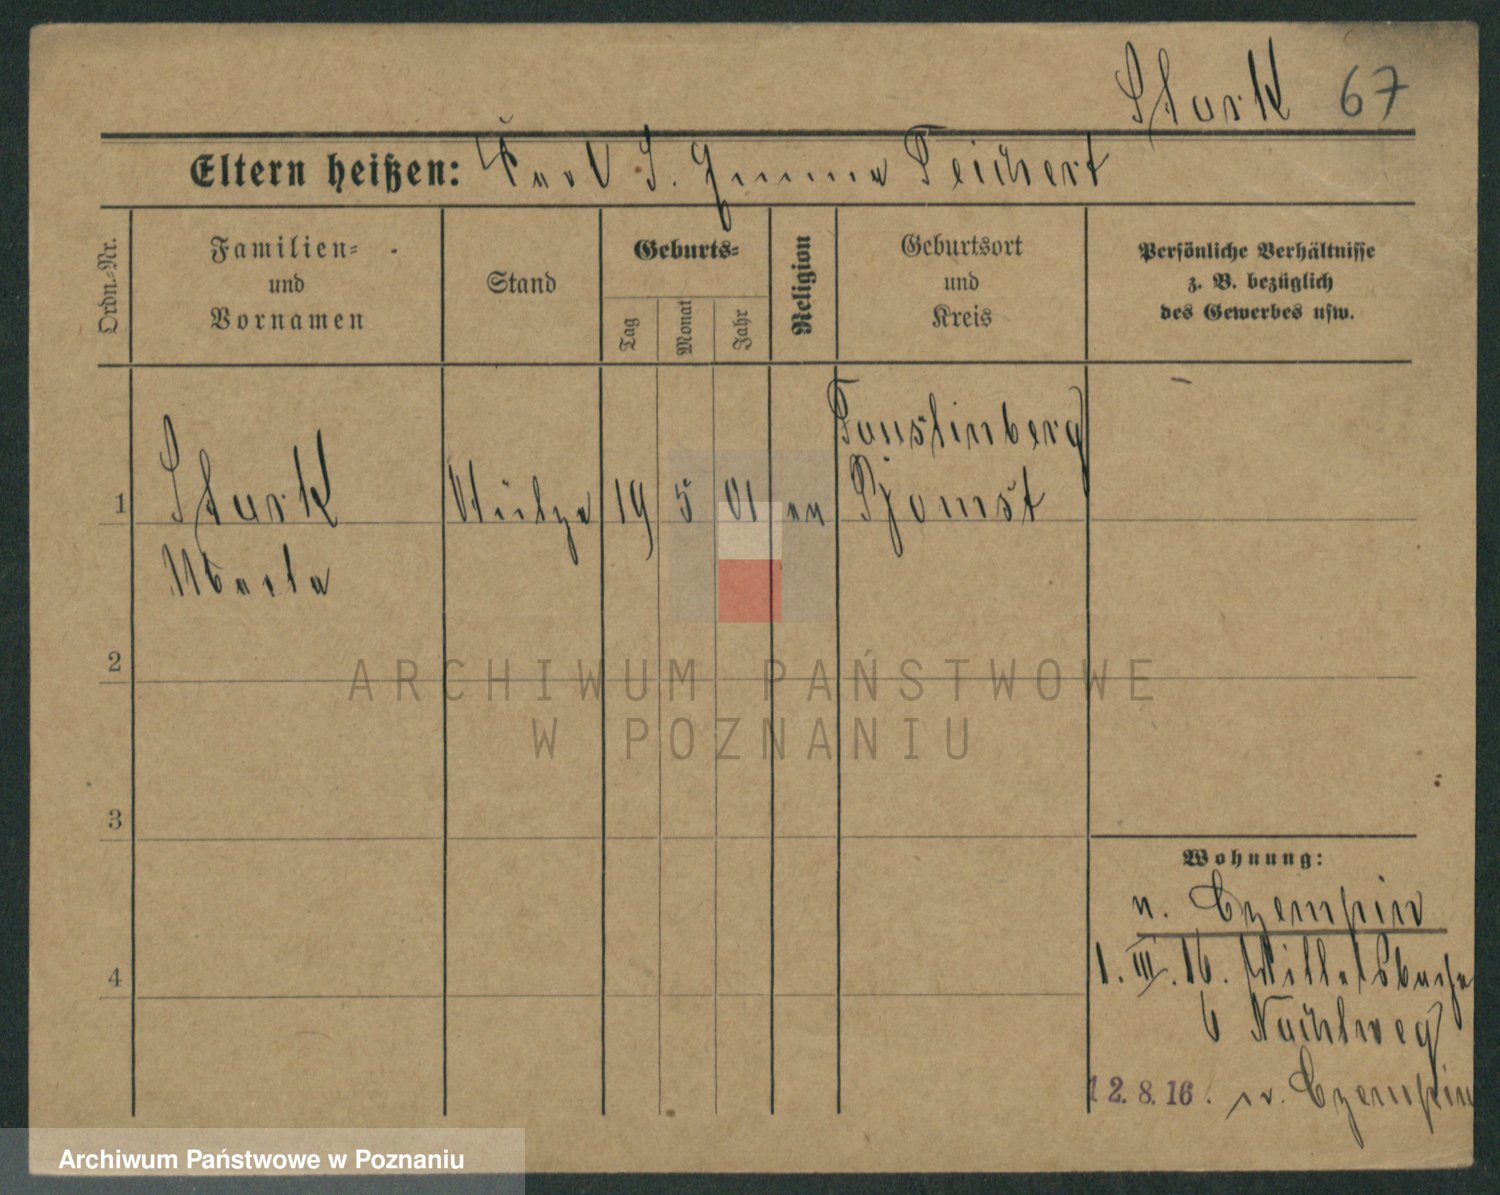 Stark 67
Eltern heißen: Karl S. Emma Teichert
Ordn.-Nr.
Familien-
und
Vornamen
Stand
Geburts-
Tag
Monat
Jahr
Religion
Geburtsort
und
Kreis
Persönliche Verhältnisse
z. B. bezüglich
des Gewerbes usw.
1
Stark
Stütze
19
5
01
Faustinberg
Bomst
2
3
4
Wohnung:
n. Czempin
1. III. 16.
b
12. 8. 16. n. Czempin
ARCHIWUM PAŃSTWOWE
W POZNANIU
Archiwum Państwowe w Poznaniu